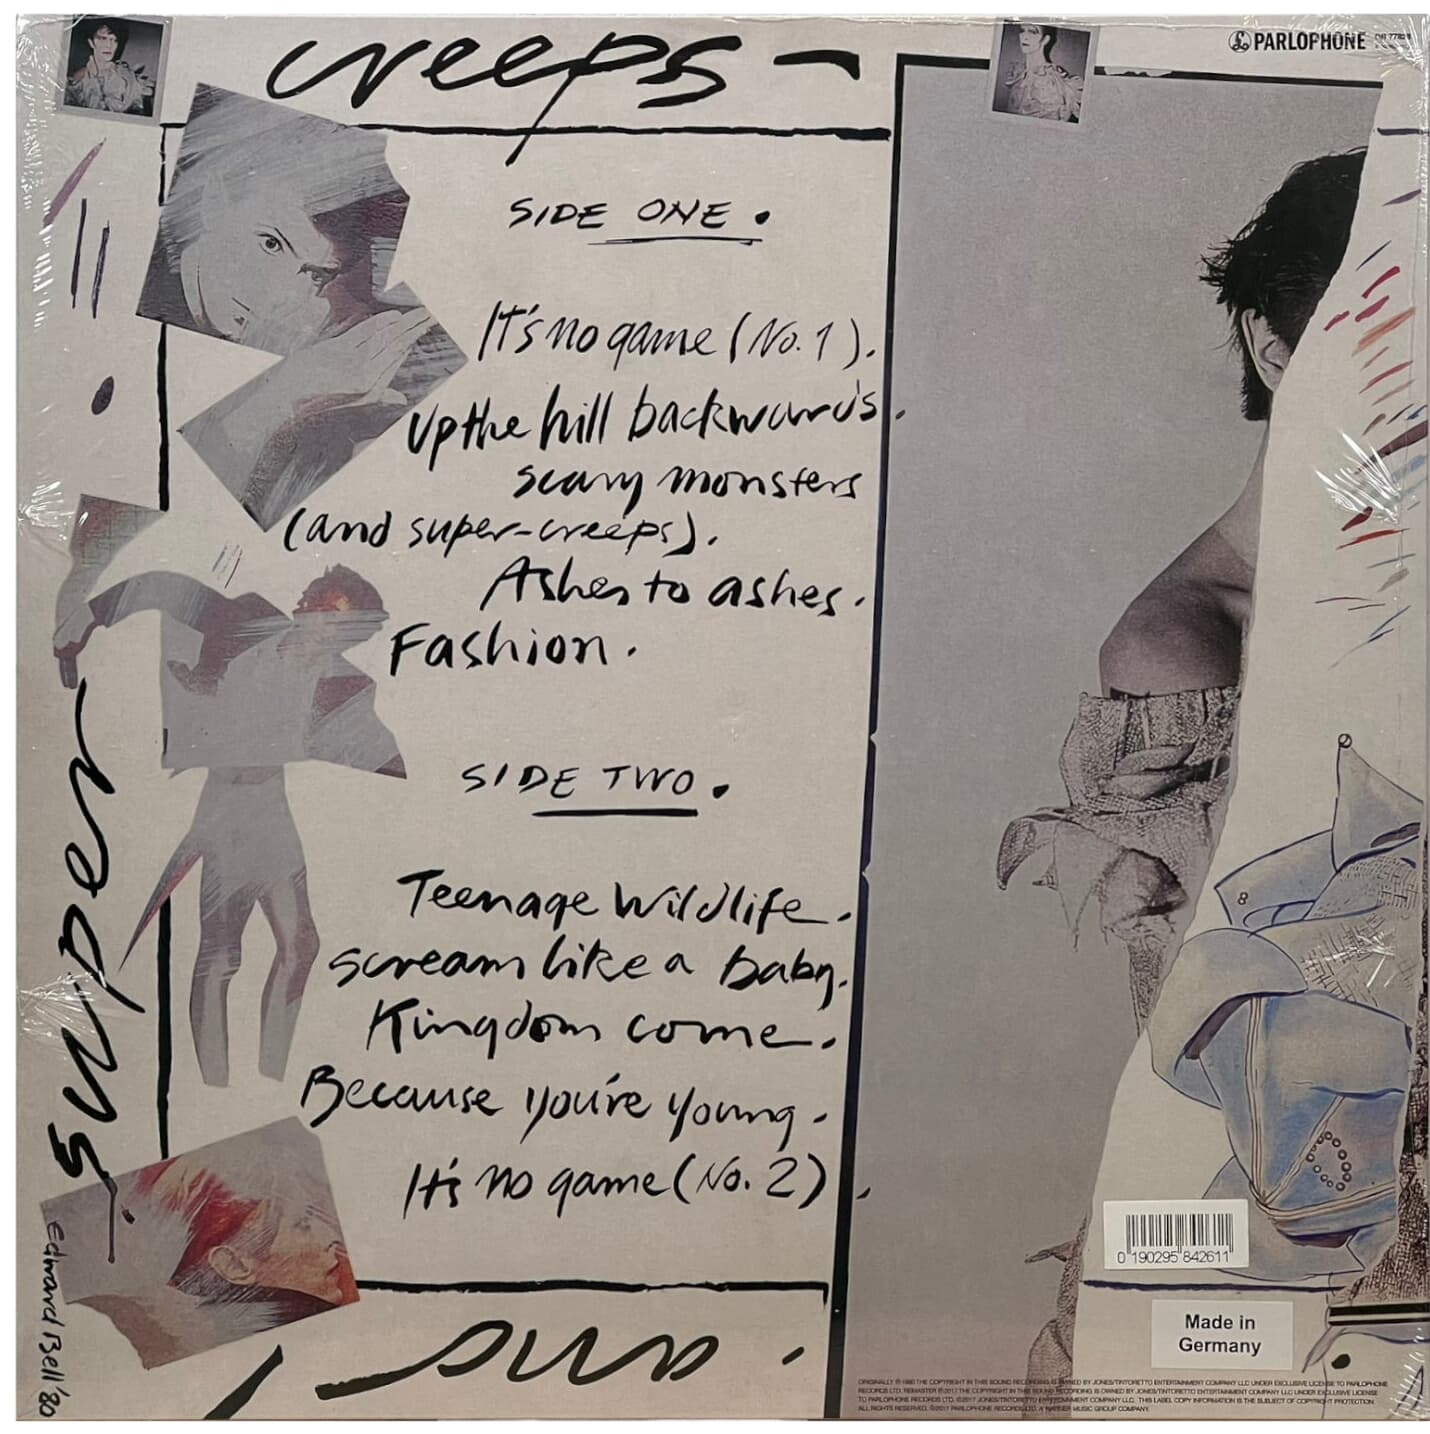 creeps -
PARLOPHONE
SIDE ONE.
It's no game (No. 1).
Up the hill backwards.
scary monsters
(and super-creeps).
Ashes to ashes.
Fashion.
SIDE TWO.
Teenage Wildlife.
scream like a baby.
Kingdom come.
Because you're young.
It's no game (No. 2).
super
Edward Bell '80
and
0 190295 842611
Made in
Germany
ORIGINALLY ℗ 1980 THE COPYRIGHT IN THIS SOUND RECORDING IS OWNED BY JONES/TINTORETTO ENTERTAINMENT COMPANY LLC UNDER EXCLUSIVE LICENSE TO PARLOPHONE
RECORDS LTD. REMASTER ℗ 2017 THE COPYRIGHT IN THIS SOUND RECORDING IS OWNED BY JONES/TINTORETTO ENTERTAINMENT COMPANY LLC UNDER EXCLUSIVE LICENSE
TO PARLOPHONE RECORDS LTD. ©2017 JONES/TINTORETTO ENTERTAINMENT COMPANY LLC. THIS LABEL COPY INFORMATION IS THE SUBJECT OF COPYRIGHT PROTECTION.
ALL RIGHTS RESERVED. ©2017 PARLOPHONE RECORDS LTD. A WARNER MUSIC GROUP COMPANY.